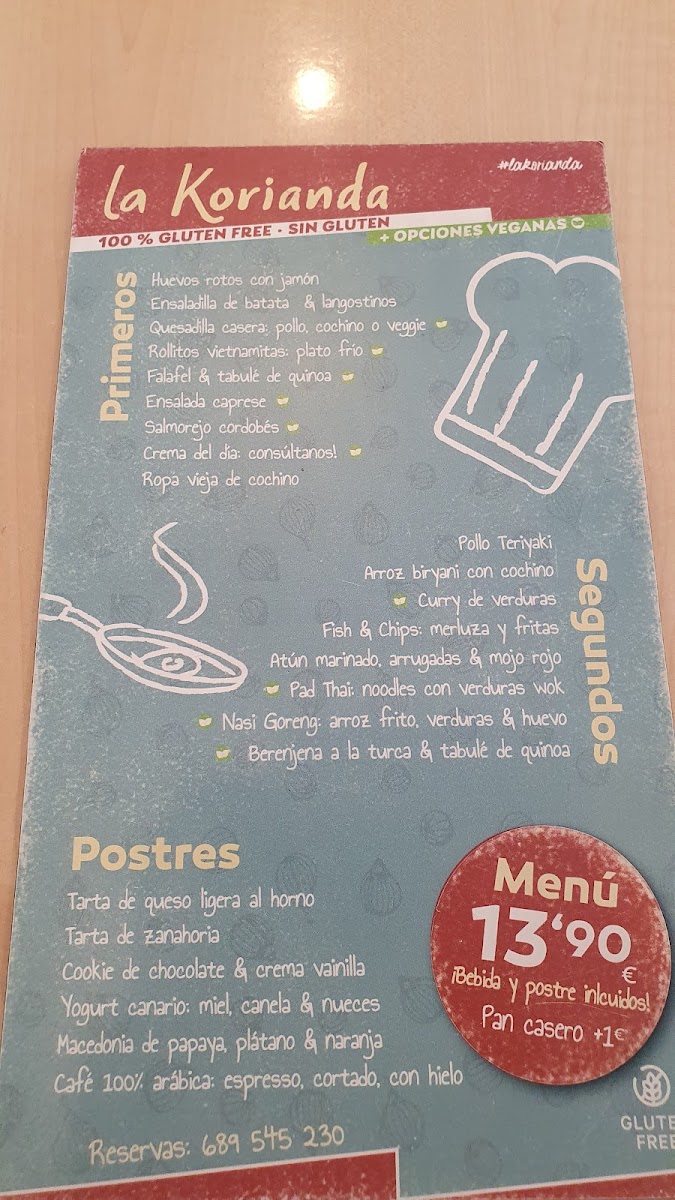 la Korianda
#lakorianda
100 % GLUTEN FREE · SIN GLUTEN
+ OPCIONES VEGANAS
Primeros
Huevos rotos con jamón
Ensaladilla de batata & langostinos
Quesadilla casera: pollo, cochino o veggie
Rollitos vietnamitas: plato frío
Falafel & tabulé de quinoa
Ensalada caprese
Salmorejo cordobés
Crema del día: consúltanos!
Ropa vieja de cochino
Segundos
Pollo Teriyaki
Arroz biryani con cochino
Curry de verduras
Fish & Chips: merluza y fritas
Atún marinado, arrugadas & mojo rojo
Pad Thai: noodles con verduras wok
Nasi Goreng: arroz frito, verduras & huevo
Berenjena a la turca & tabulé de quinoa
Postres
Tarta de queso ligera al horno
Tarta de zanahoria
Cookie de chocolate & crema vainilla
Yogurt canario: miel, canela & nueces
Macedonia de papaya, plátano & naranja
Café 100% arábica: espresso, cortado, con hielo
Menú
13'90
€
¡Bebida y postre inlcuidos!
Pan casero +1€
Reservas: 689 545 230
GLUTE
FREE